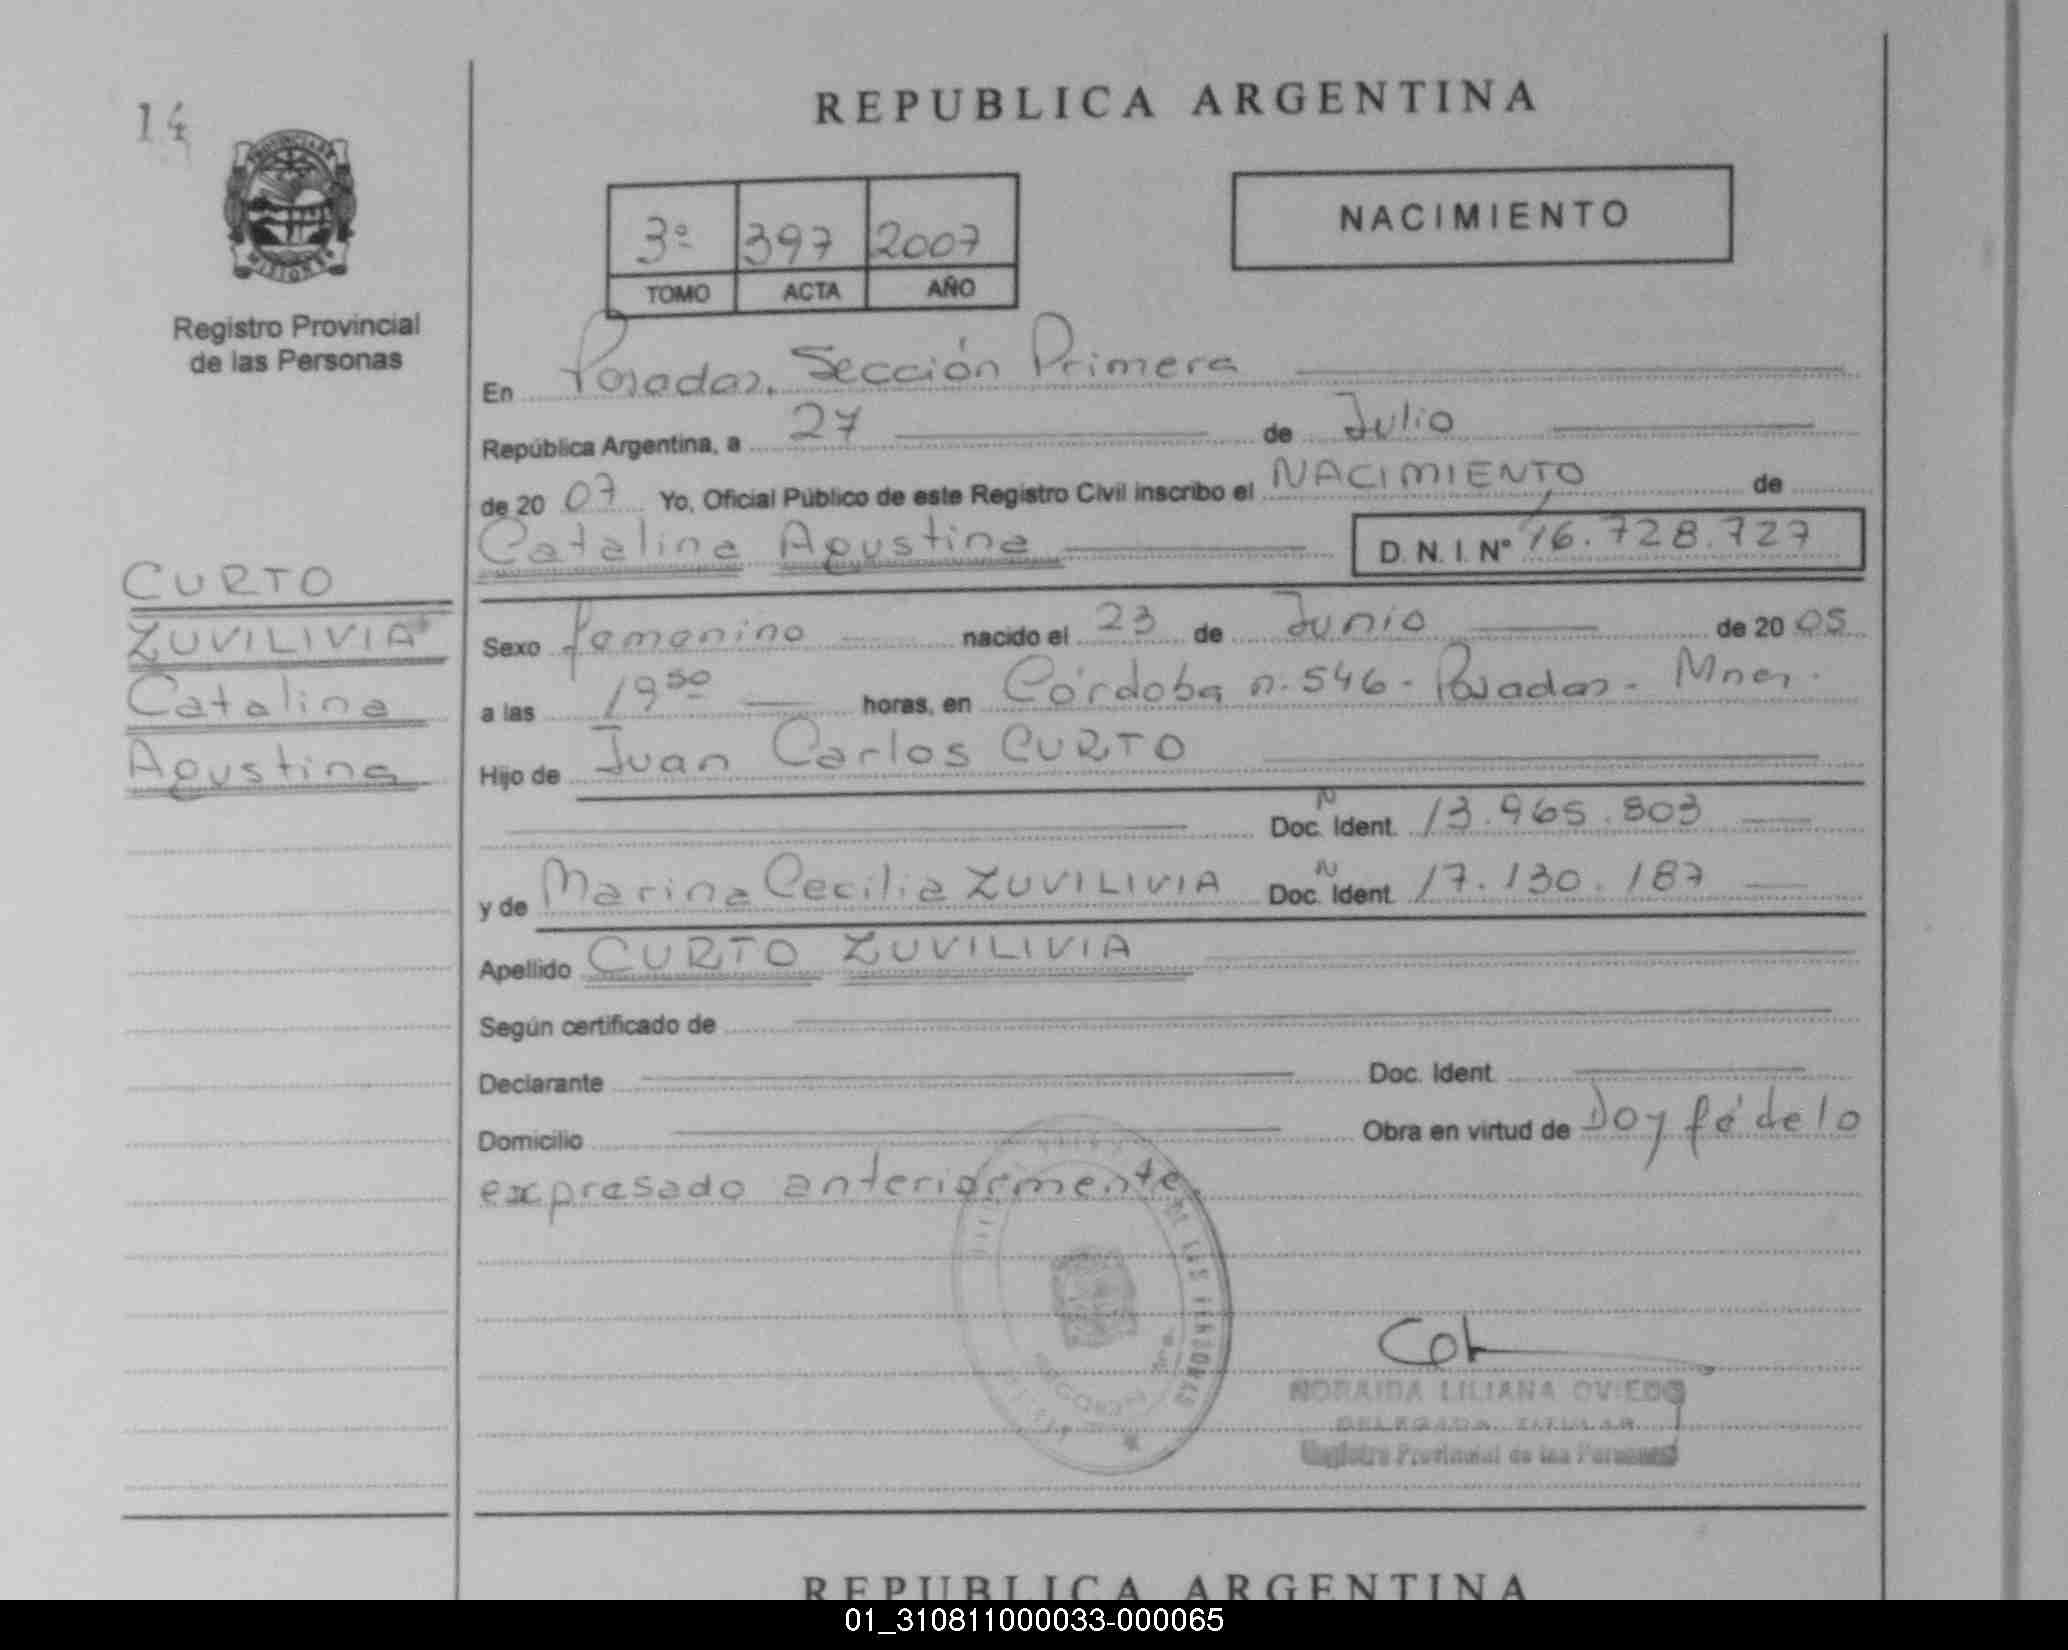 14
REPUBLICA ARGENTINA
3º 397 2007
TOMO ACTA AÑO
NACIMIENTO
MISIONES
Registro Provincial
de las Personas
En Posadas, Sección Primera
República Argentina, a 27 de Julio
de 20 07 Yo, Oficial Público de este Registro Civil inscribo el NACIMIENTO de
Catalina Agustina D. N. I. Nº 46.728.727
CURTO
ZUVILIVIA
Catalina
Agustina
Sexo femenino nacido el 23 de Junio de 20 05
a las 19 50 horas, en Córdoba n. 546 - Posadas - Mnes.
Hijo de Juan Carlos CURTO
N
Doc. Ident. 13.965.803
y de Marina Cecilia ZUVILIVIA N Doc. Ident. 17.130.187
Apellido CURTO ZUVILIVIA
Según certificado de
Declarante Doc. Ident.
Domicilio Obra en virtud de Doy fé de lo
expresado anteriormente
DE LAS PERSONAS
NORAIDA LILIANA OVIEDO
DELEGADA TITULAR
Registro Provincial de las Personas
REPUBLICA ARGENTINA
01_310811000033-000065